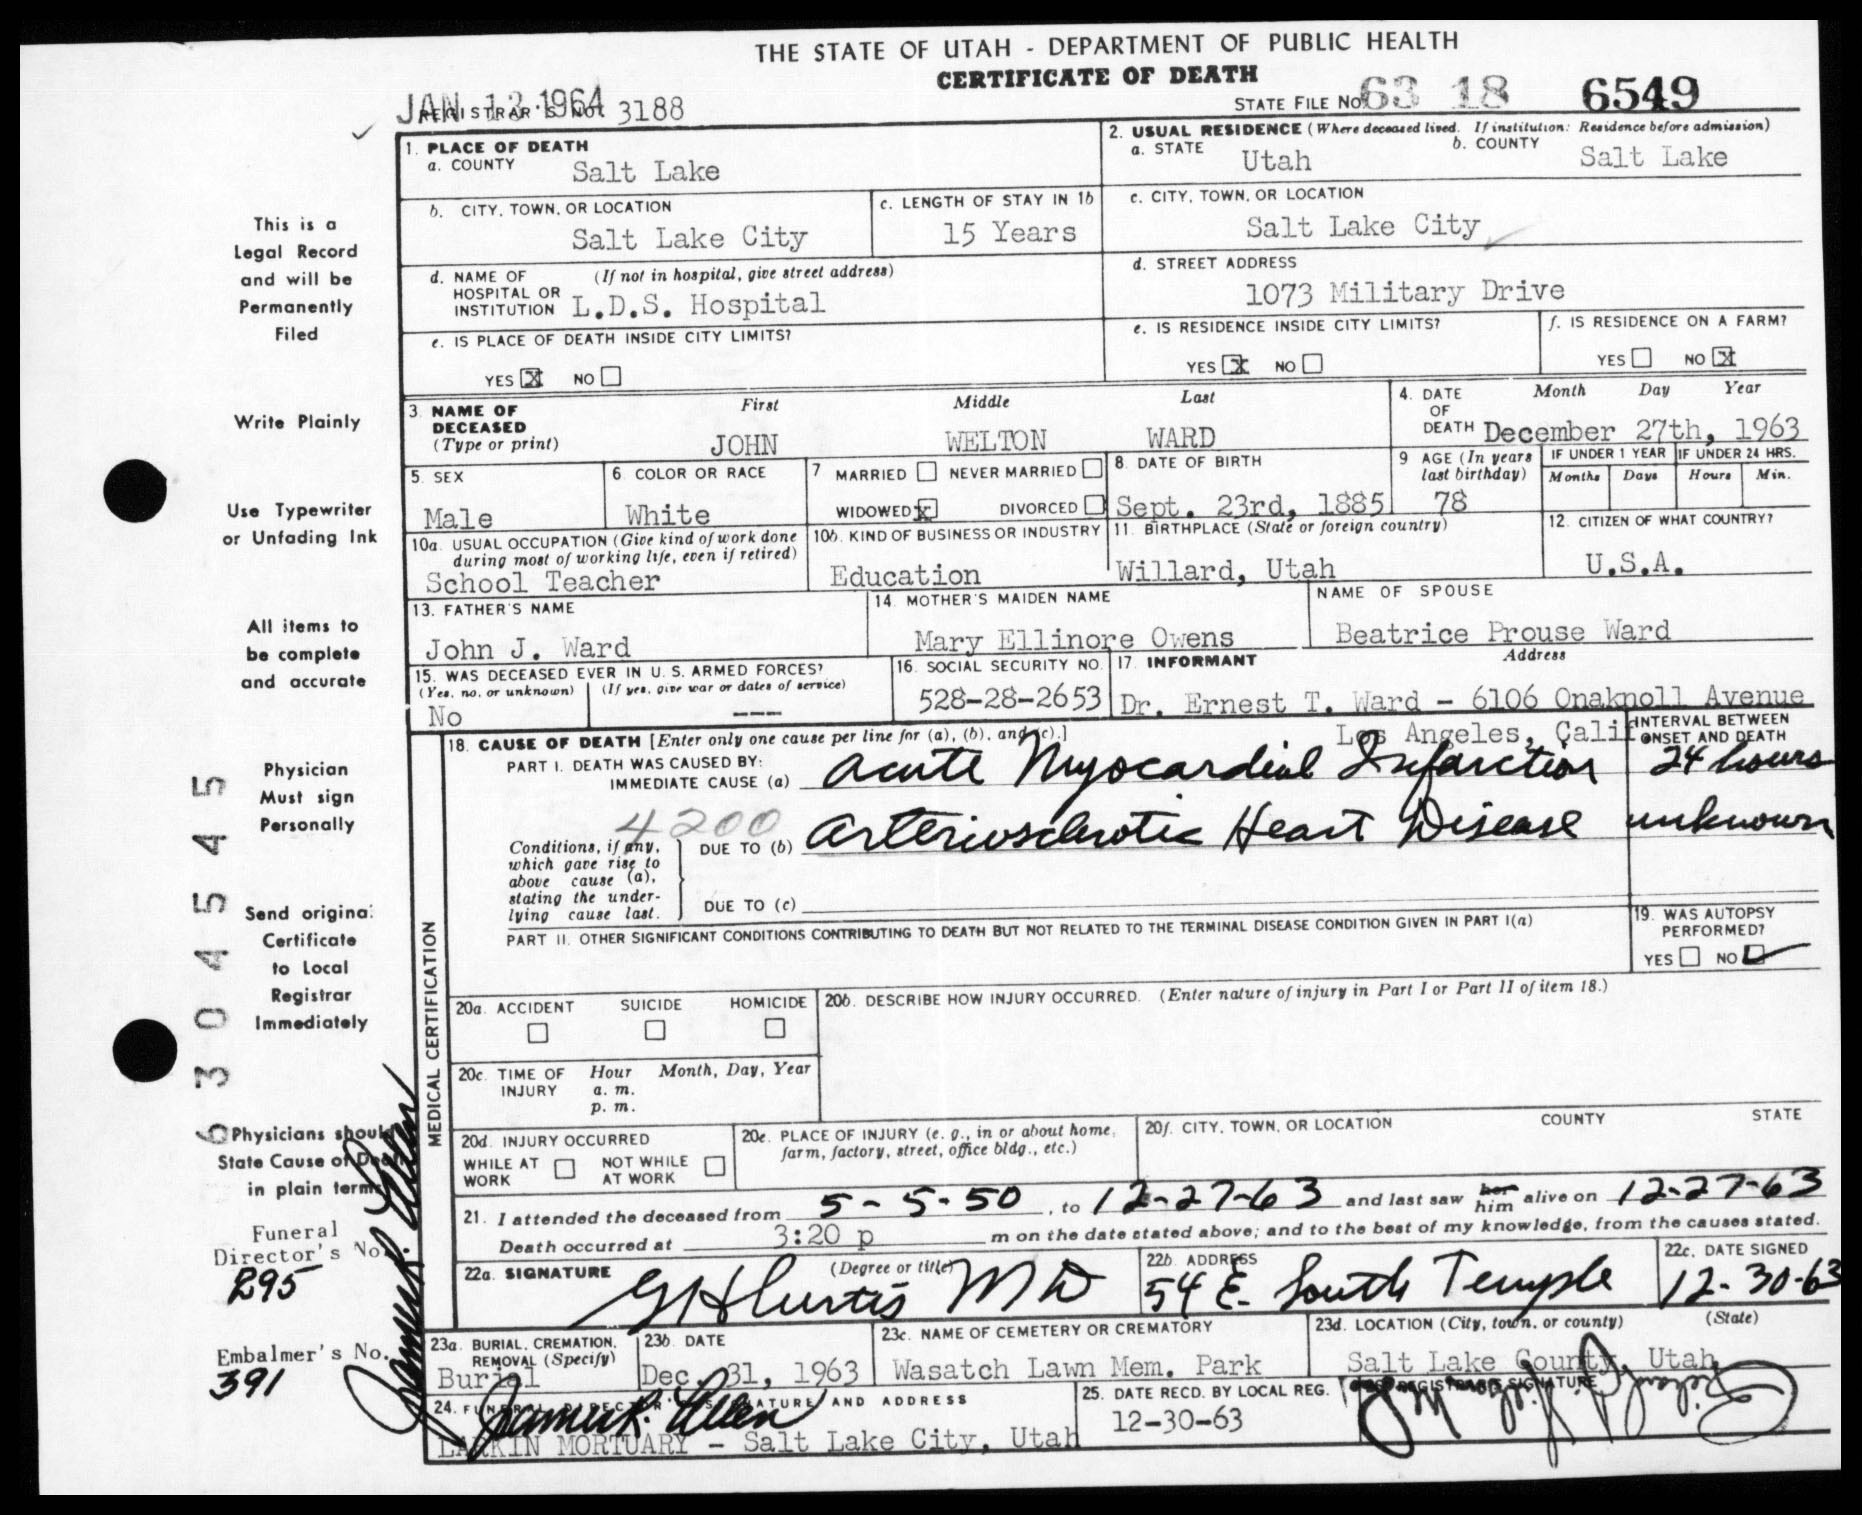 THE STATE OF UTAH - DEPARTMENT OF PUBLIC HEALTH
CERTIFICATE OF DEATH
JAN 13 1964
REGISTRAR'S NO. 3188
STATE FILE NO. 63 18 6549
1. PLACE OF DEATH
a. COUNTY Salt Lake
2. USUAL RESIDENCE (Where deceased lived. If institution: Residence before admission)
a. STATE Utah b. COUNTY Salt Lake
b. CITY, TOWN, OR LOCATION Salt Lake City
c. LENGTH OF STAY IN 1b 15 Years
c. CITY, TOWN, OR LOCATION Salt Lake City
d. NAME OF HOSPITAL OR INSTITUTION (If not in hospital, give street address) L.D.S. Hospital
d. STREET ADDRESS 1073 Military Drive
e. IS PLACE OF DEATH INSIDE CITY LIMITS?
YES X NO
e. IS RESIDENCE INSIDE CITY LIMITS?
YES X NO
f. IS RESIDENCE ON A FARM?
YES NO X
3. NAME OF DECEASED (Type or print)
First Middle Last
JOHN WELTON WARD
4. DATE OF DEATH Month Day Year
December 27th, 1963
5. SEX Male
6. COLOR OR RACE White
7 MARRIED NEVER MARRIED
WIDOWED X DIVORCED
8. DATE OF BIRTH Sept. 23rd, 1885
9 AGE (In years last birthday) 78
IF UNDER 1 YEAR Months Days
IF UNDER 24 HRS. Hours Min.
10a. USUAL OCCUPATION (Give kind of work done during most of working life, even if retired)
School Teacher
10b. KIND OF BUSINESS OR INDUSTRY
Education
11. BIRTHPLACE (State or foreign country)
Willard, Utah
12. CITIZEN OF WHAT COUNTRY?
U.S.A.
13. FATHER'S NAME
John J. Ward
14. MOTHER'S MAIDEN NAME
Mary Ellinore Owens
NAME OF SPOUSE
Beatrice Prouse Ward
15. WAS DECEASED EVER IN U.S. ARMED FORCES?
(Yes, no, or unknown) (If yes, give war or dates of service)
No ---
16. SOCIAL SECURITY NO.
528-28-2653
17. INFORMANT Address
Dr. Ernest T. Ward - 6106 Onaknoll Avenue
Los Angeles, Calif
18. CAUSE OF DEATH [Enter only one cause per line for (a), (b), and (c).]
INTERVAL BETWEEN ONSET AND DEATH
PART I. DEATH WAS CAUSED BY:
IMMEDIATE CAUSE (a) Acute Myocardial Infarction 24 hours
4200
Conditions, if any, which gave rise to above cause (a), stating the underlying cause last.
DUE TO (b) Arteriosclerotic Heart Disease unknown
DUE TO (c)
PART II. OTHER SIGNIFICANT CONDITIONS CONTRIBUTING TO DEATH BUT NOT RELATED TO THE TERMINAL DISEASE CONDITION GIVEN IN PART I(a)
19. WAS AUTOPSY PERFORMED?
YES NO
20a. ACCIDENT SUICIDE HOMICIDE
20b. DESCRIBE HOW INJURY OCCURRED. (Enter nature of injury in Part I or Part II of item 18.)
20c. TIME OF INJURY Hour a.m. p.m. Month, Day, Year
20d. INJURY OCCURRED
WHILE AT WORK NOT WHILE AT WORK
20e. PLACE OF INJURY (e. g., in or about home, farm, factory, street, office bldg., etc.)
20f. CITY, TOWN, OR LOCATION COUNTY STATE
21. I attended the deceased from 5-5-50, to 12-27-63 and last saw her him alive on 12-27-63
Death occurred at 3:20 p m on the date stated above; and to the best of my knowledge, from the causes stated.
22a. SIGNATURE (Degree or title)
G H Curtis MD
22b. ADDRESS
54 E. South Temple
22c. DATE SIGNED
12-30-63
23a. BURIAL, CREMATION, REMOVAL (Specify)
Burial
23b. DATE
Dec. 31, 1963
23c. NAME OF CEMETERY OR CREMATORY
Wasatch Lawn Mem. Park
23d. LOCATION (City, town, or county) (State)
Salt Lake County, Utah
24. FUNERAL DIRECTOR'S SIGNATURE AND ADDRESS
James R. Allen
LARKIN MORTUARY - Salt Lake City, Utah
25. DATE RECD. BY LOCAL REG.
12-30-63
REGISTRAR'S SIGNATURE
MEDICAL CERTIFICATION
This is a
Legal Record
and will be
Permanently
Filed
Write Plainly
Use Typewriter
or Unfading Ink
All items to
be complete
and accurate
Physician
Must sign
Personally
Send original
Certificate
to Local
Registrar
Immediately
Physicians should
State Cause of Death
in plain terms
Funeral
Director's No.
295
Embalmer's No.
391
James R. Allen
63045545